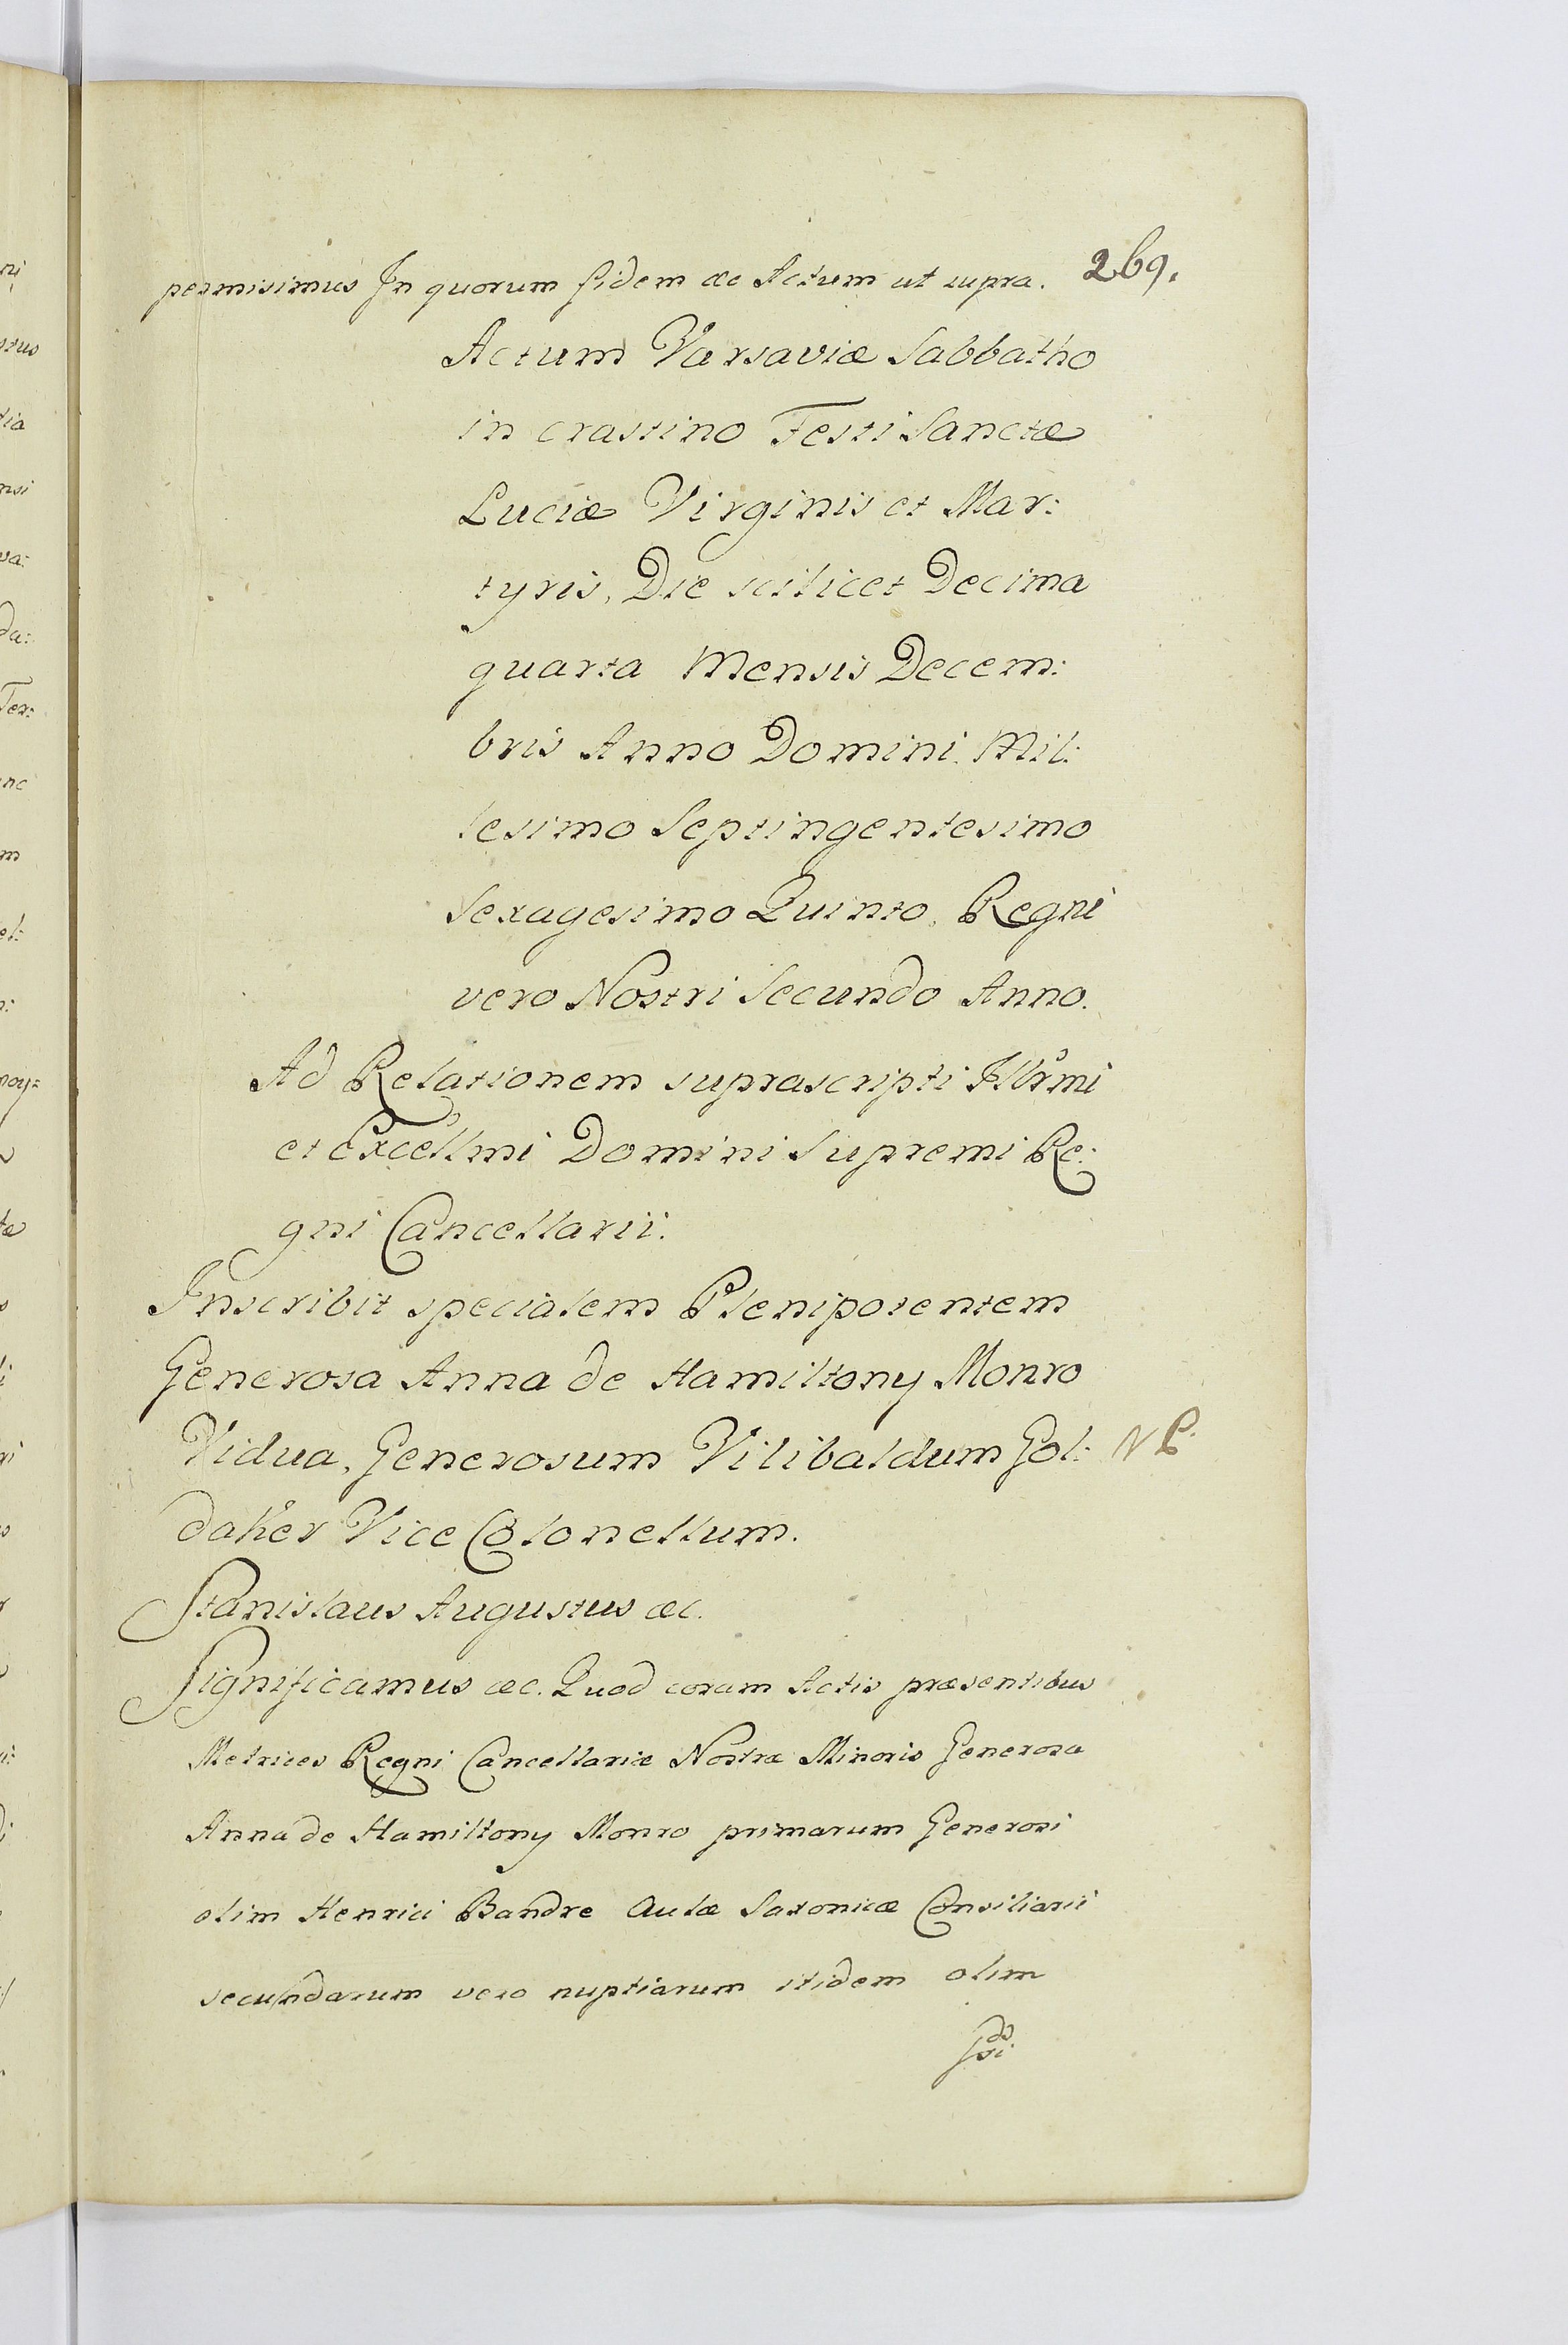 269.
permisimus In quorum fidem &c Actum ut supra.
Actum Varsaviæ Sabbatho
in crastino Festi Sanctæ
Luciæ Virginis et Mar:
tyris, Die scilicet Decima
quarta Mensis Decem:
bris Anno Domini Mil:
lesimo Septingentesimo
Sexagesimo Quinto, Regni
vero Nostri Secundo Anno.
Ad Relationem suprascripti Illrmi
et Excellmi Domini Supremi Re:
gni Cancellarii.
Inscribit specialem Plenipotentem
Generosa Anna de Hamiltony Monro
Vidua, Generosum Vilibaldum Gol:
daker Vice Colonellum.
Stanislaus Augustus &c.
Significamus &c. Quod coram Actis præsentibus
Metrices Regni Cancellariæ Nostræ Minoris Generosa
Anna de Hamiltony Monro primarum Generosi
olim Henrici Bandre Aulæ Saxonicæ Consiliarii
secundarum vero nuptiarum itidem olim